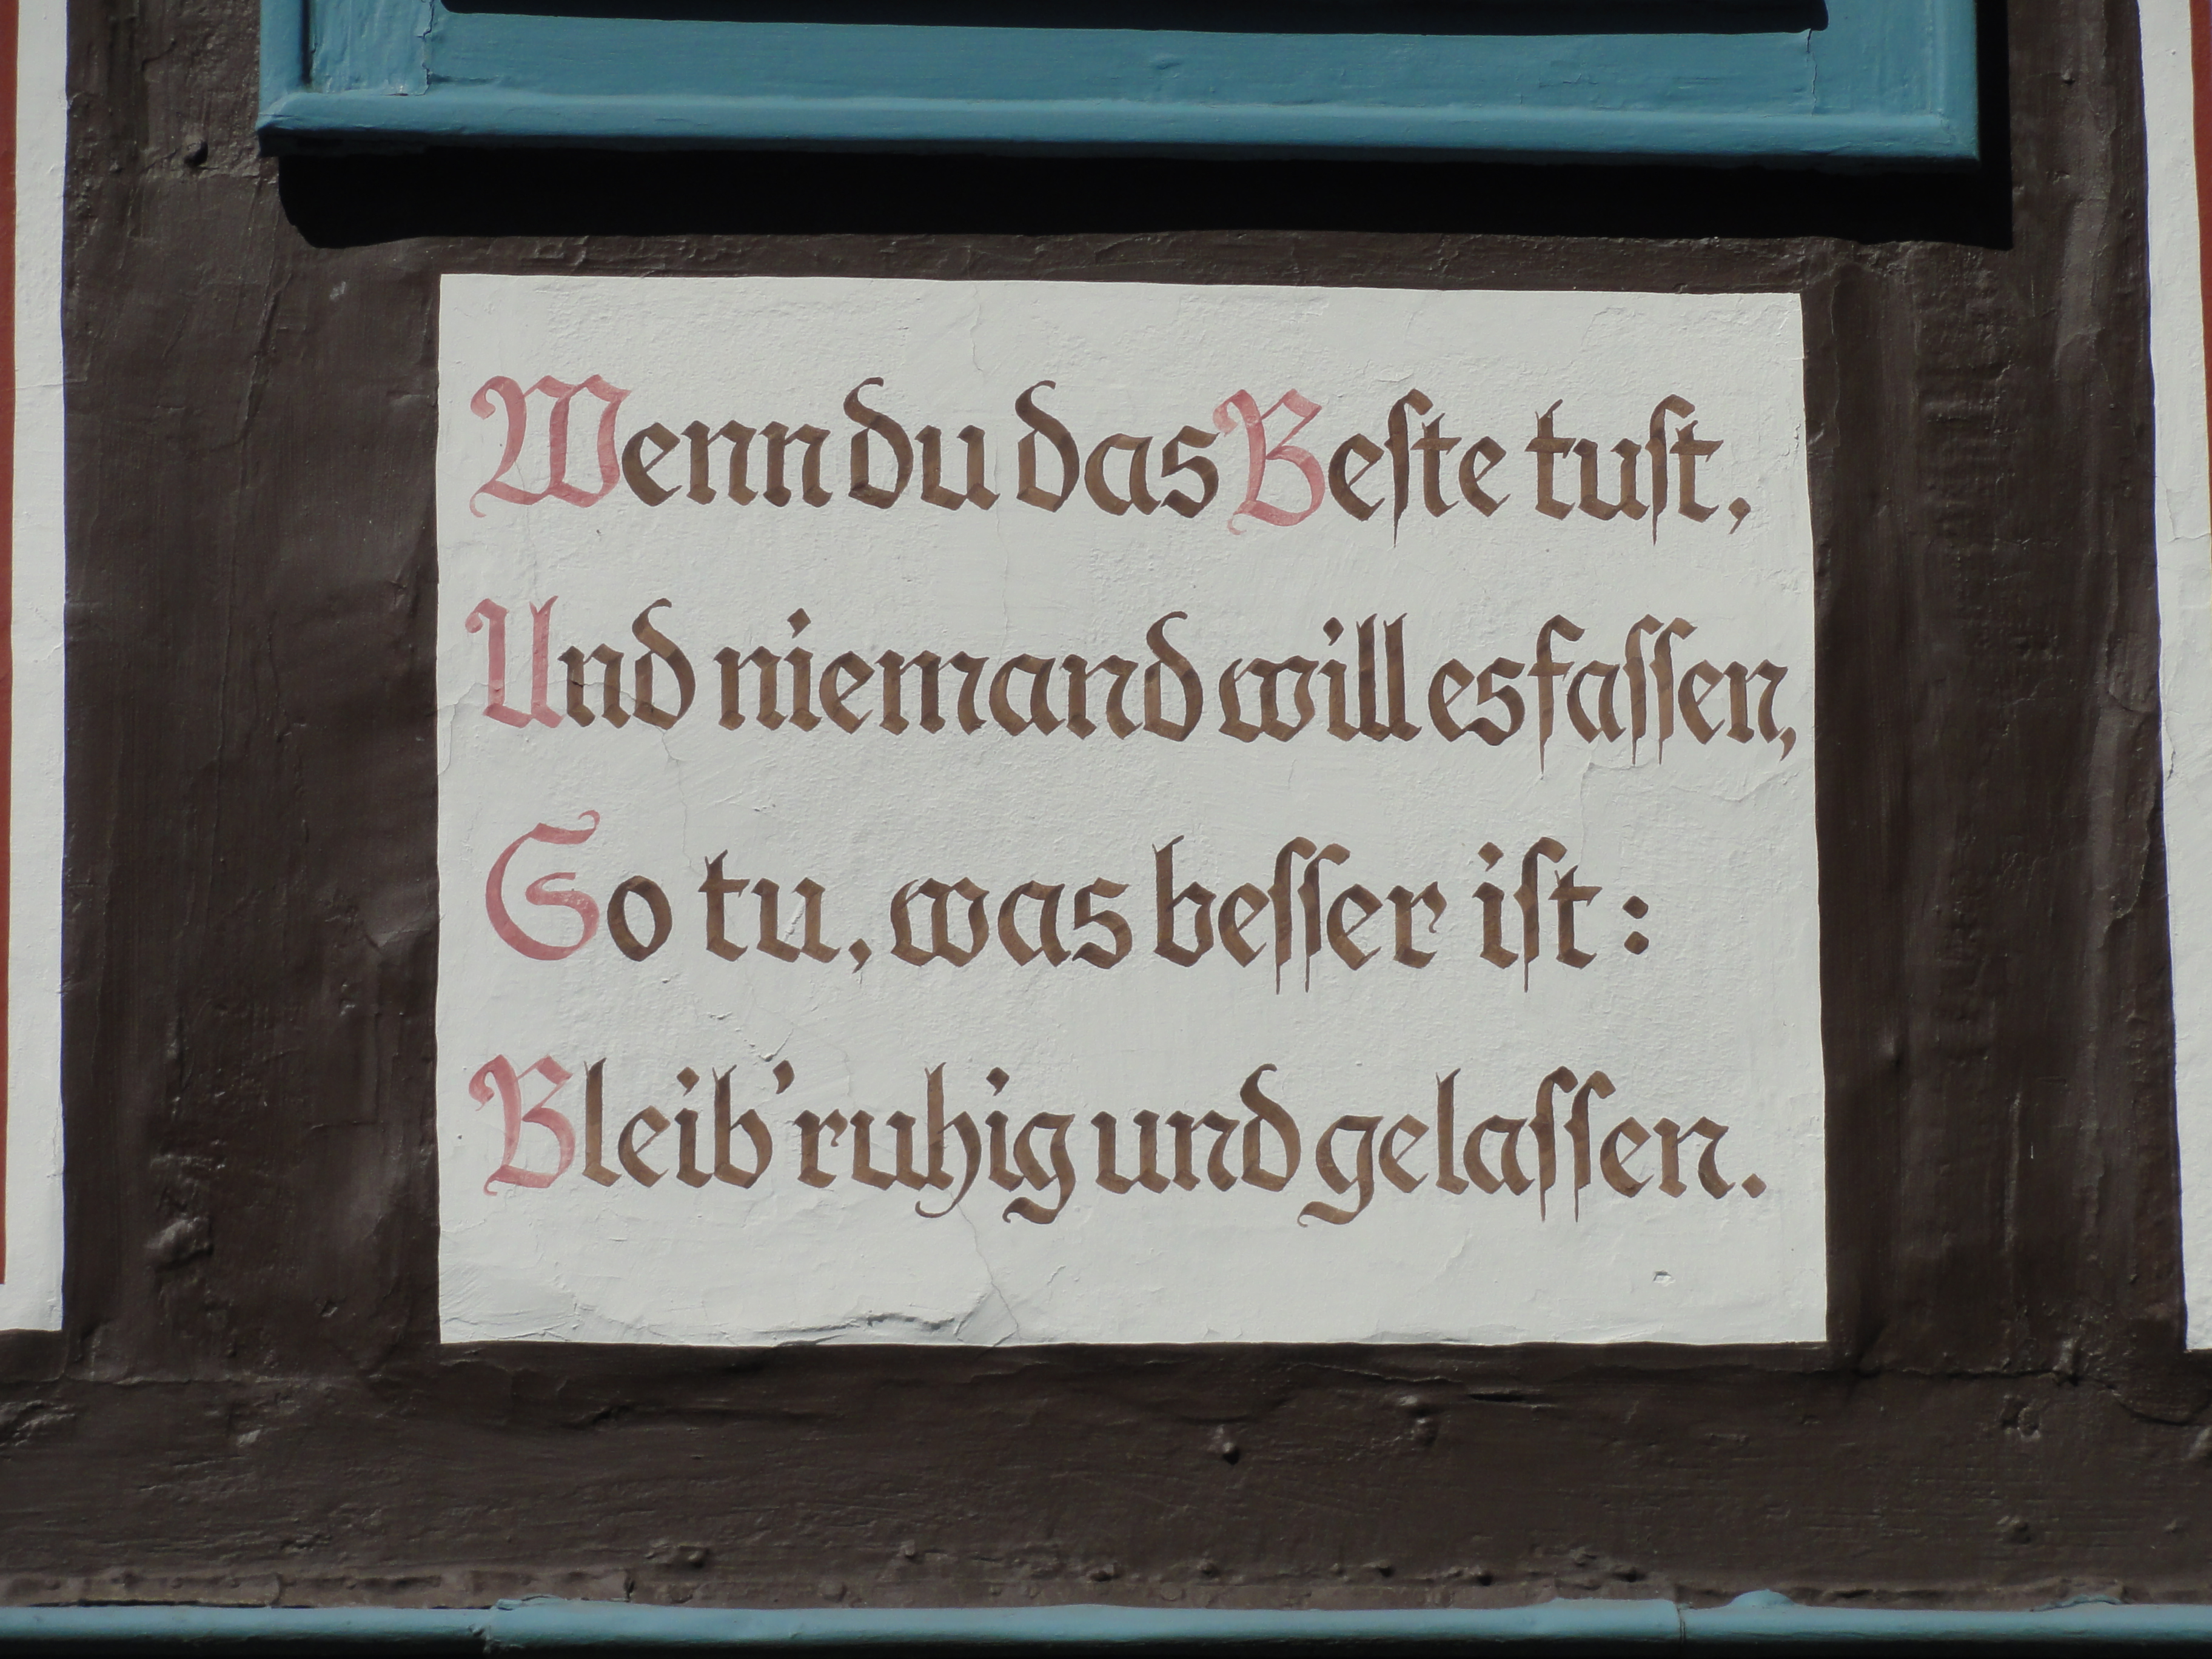 Wenn du das Beste tust,
Und niemand will es fassen,
So tu, was besser ist:
Bleib' ruhig und gelassen.